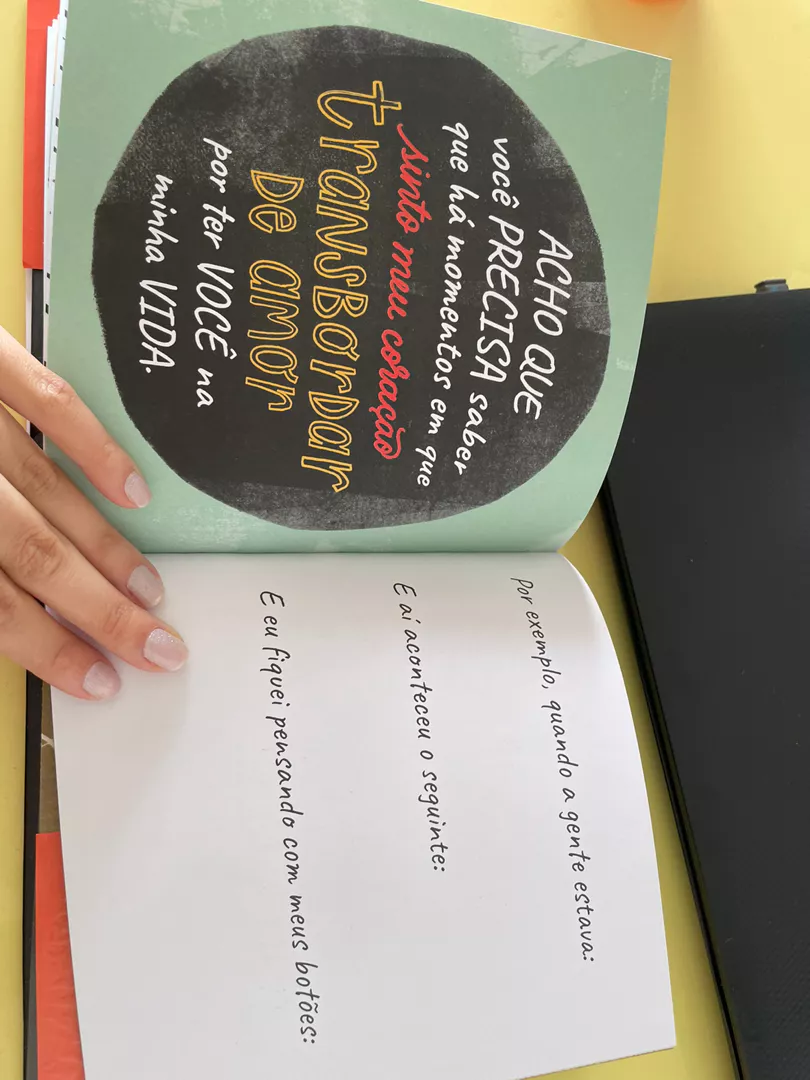 ACHO QUE
você PRECISA saber
que há momentos em que
sinto meu coração
transbordar
De amor
por ter VOCÊ na
minha VIDA.
Por exemplo, quando a gente estava:
E aí aconteceu o seguinte:
E eu fiquei pensando com meus botões: